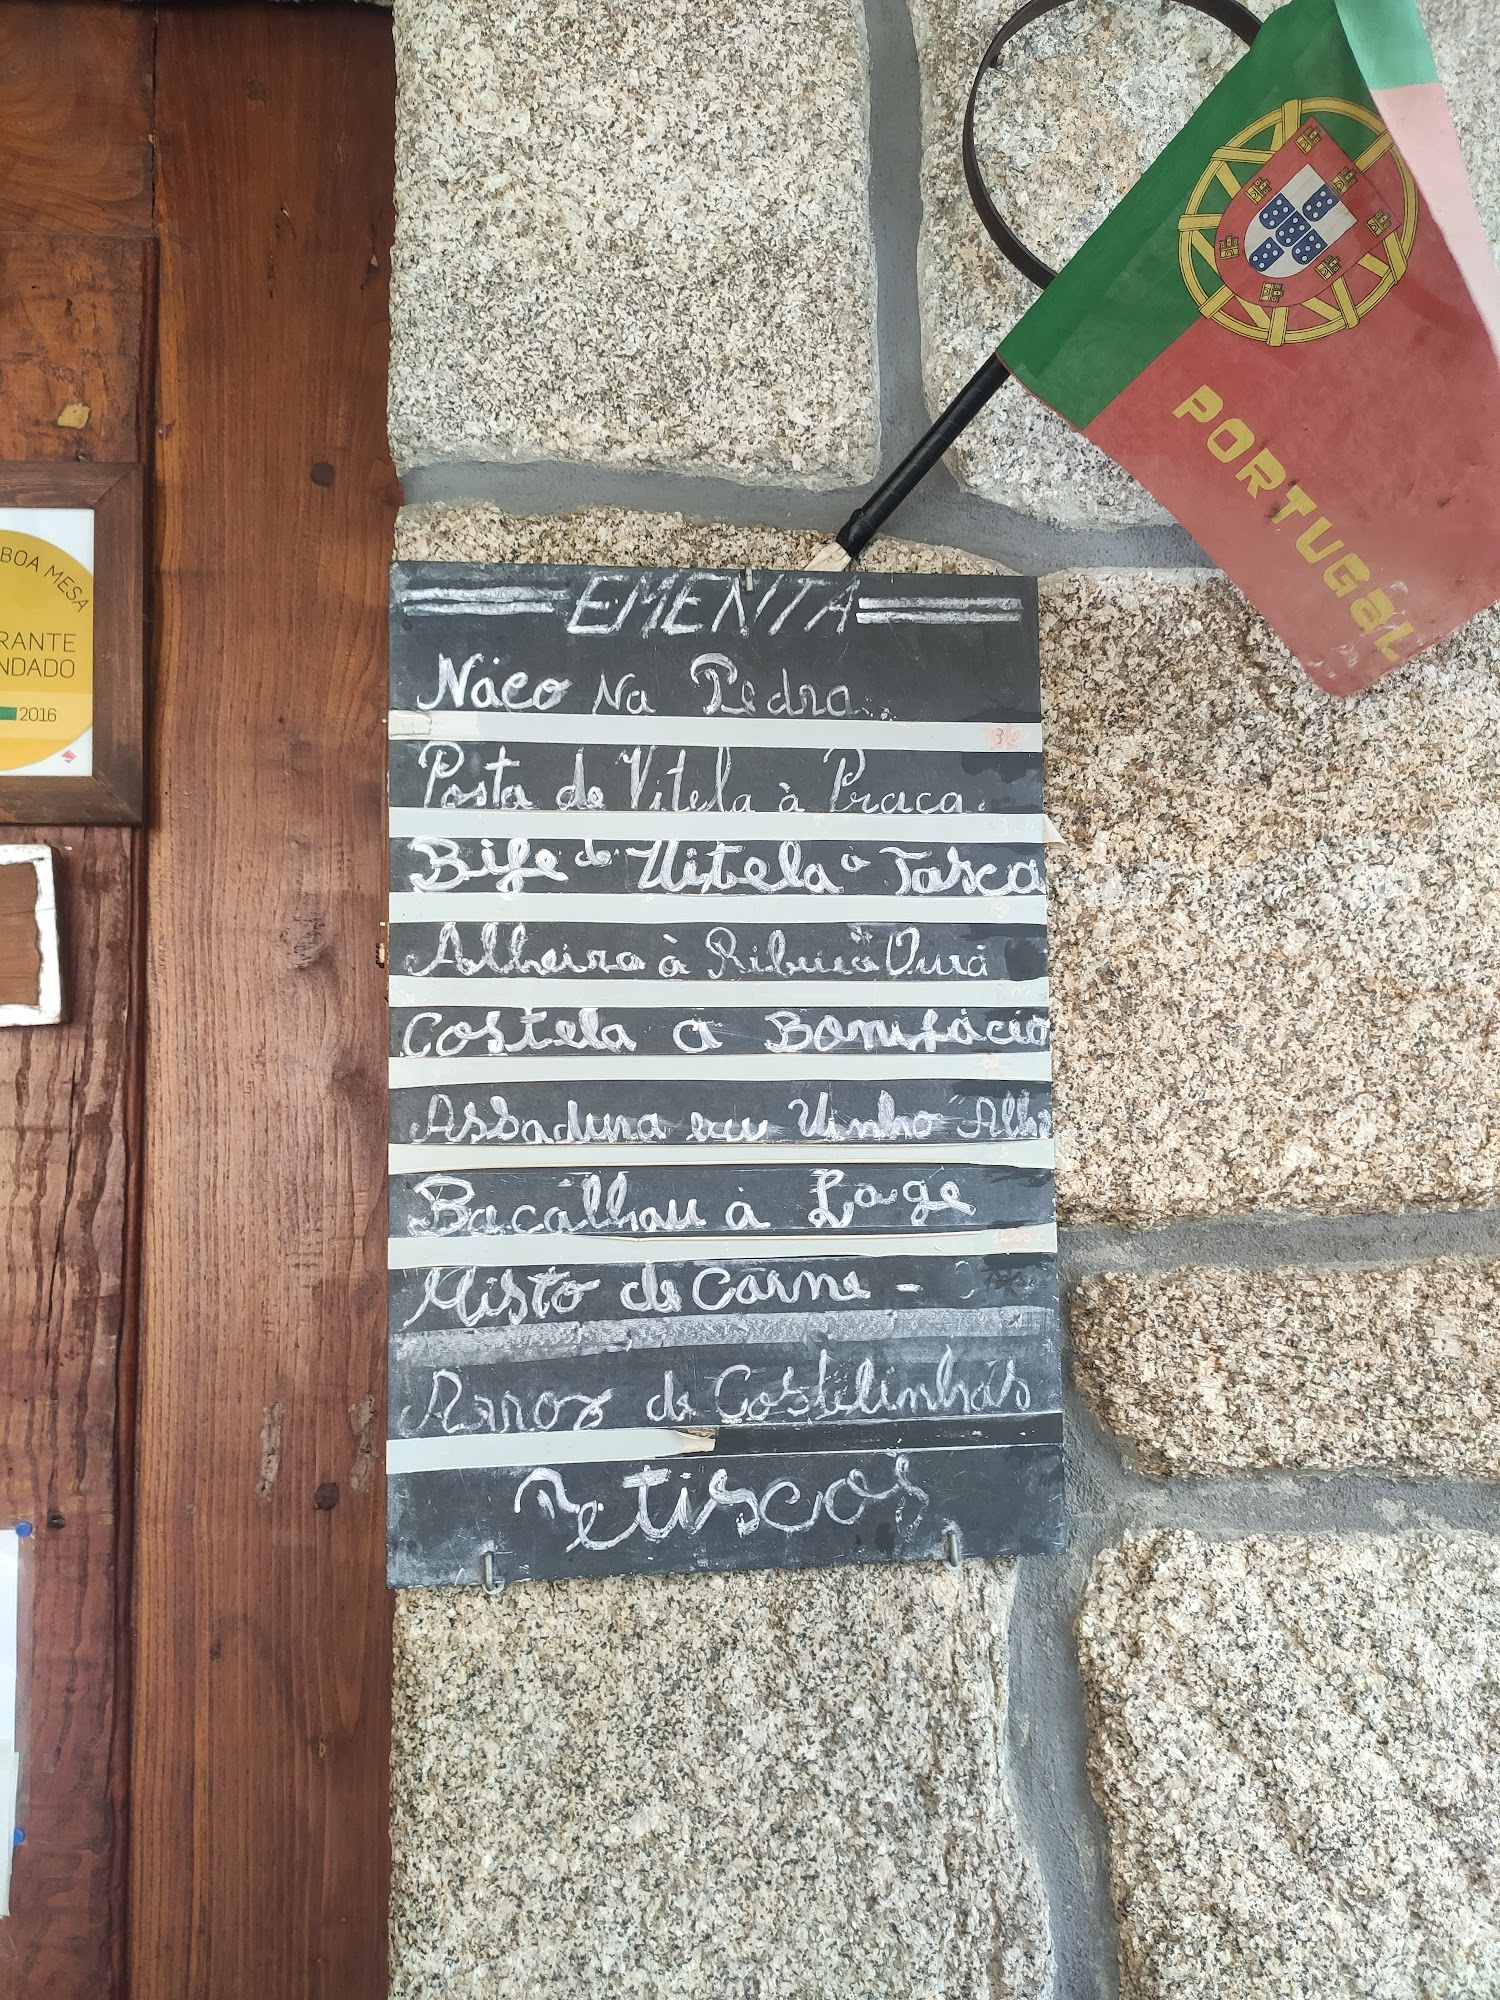 BOA MESA
RANTE
NDADO
2016
PORTUGaL
EMENTA
Naco Na Pedra
Posta de Vitela à Praca.
Bife de Vitela à Tasca
Alheira à Ribeira Dura
Costela a Bonifácio
Assadura em Vinho Alh
Bacalhau à Lage
Misto de Carne -
Arroz de Costelinhas
Petiscos